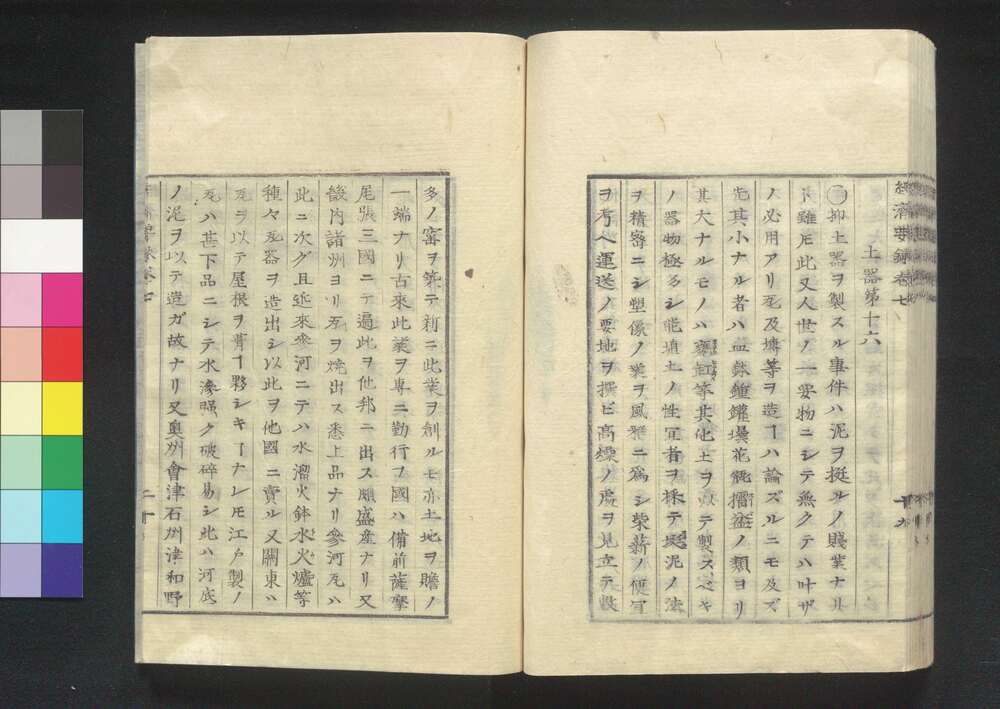 經濟要録卷七
土器第十六
○抑土器ヲ製スル事件ハ泥ヲ挻ルノ賤業ナリ
ト雖𪜈此又人世ノ一要物ニシテ無クテハ叶ザ
ノ必用アリ瓦及塼等ヲ造ヿハ論ズルニモ及ズ
先其小ナル者ハ皿鉢鍾鑵壜花瓶擂盆ノ類ヨリ
其大ナルモノハ甕缸等其他土ヲ以テ製スベキ
ノ器物極多シ能埴土ノ性宜者ヲ択テ埿泥ノ法
ヲ精密ニシ塑像ノ業ヲ風雅ニ為シ柴薪ノ便宜
ヲ考ヘ運送ノ要地ヲ撰ビ高燥ノ處ヲ見立テ數
十九
多ノ窯ヲ築テ新ニ此業ヲ創ルモ亦土地ヲ贍ノ
一端ナリ古來此業ヲ專ニ勤行フ國ハ備前薩摩
尾張三國ニテ遍此ヲ他邦ニ出ス頗盛産ナリ又
畿内諸州ヨリ瓦ヲ焼出ス悉上品ナリ參河瓦ハ
此ニ次グ且近來参河ニテハ水溜火鉢水火爐等
種々瓦器ヲ造出シ以此ヲ他國ニ賣ル又關東ハ
瓦ヲ以テ屋根ヲ葺ヿ夥シキヿナレ𪜈江戸製ノ
瓦ハ甚下品ニシテ水滲強ク破碎易シ此ハ河底
ノ泥ヲ以テ造ガ故ナリ又奥州會津石州津和野
二十